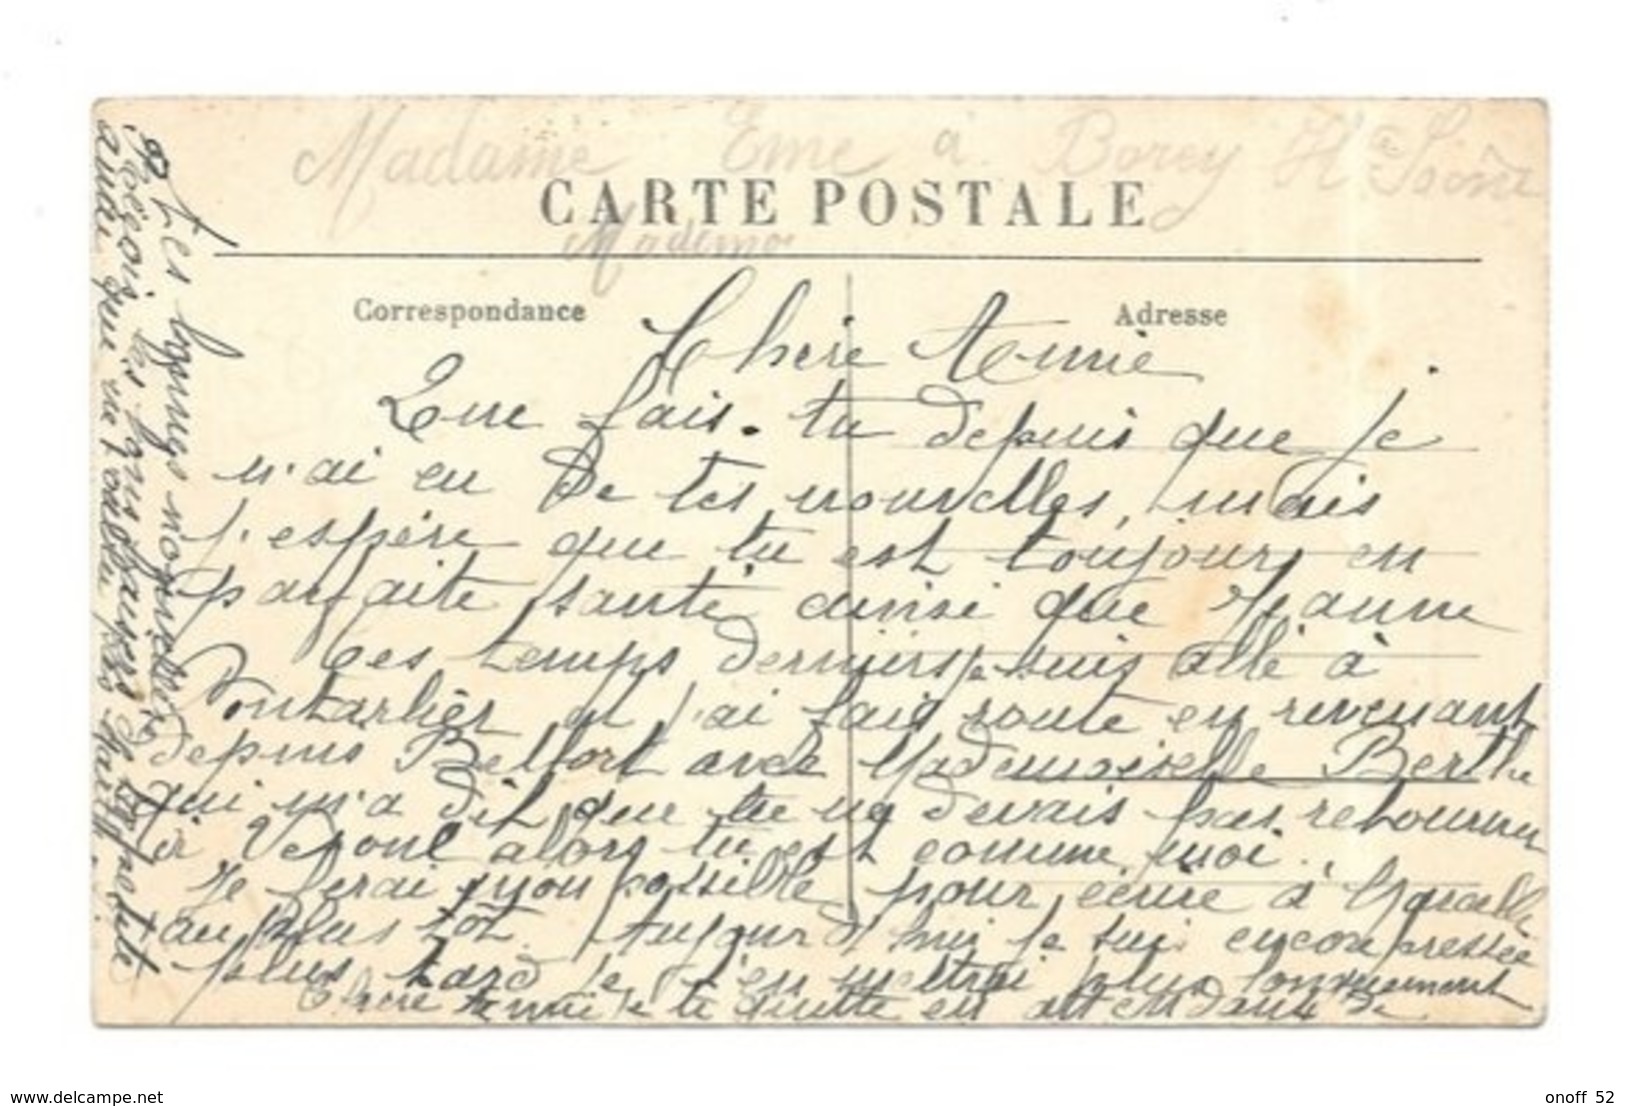 Madame Eme à Borey Hte Saône
CARTE POSTALE
Mademo
Correspondance
Adresse
Chère Amie
Que fais-tu depuis que je
n'ai eu de tes nouvelles, mais
j'espère que tu est toujours en
parfaite santé ainsi que Jeanne
Ces temps derniers je suis allé à
Pontarlier et j'ai fais route en revenant
depuis Belfort avec Mademoiselle Berthe
qui m'a dit que tu ne devais pas retourner
à Vesoul alors tu est comme moi.
Je ferai mon possible pour écrire à Marcelle
au plus tôt. Aujourd'hui je sui encore pressée
plus tard je t'en mettrai plus longuement
Chère Amie je te quitte en attendant de
tes bonnes nouvelles
Reçois les plus de ta petite
amie qui ne t'oublie pas
www.delcampe.net
onoff 52